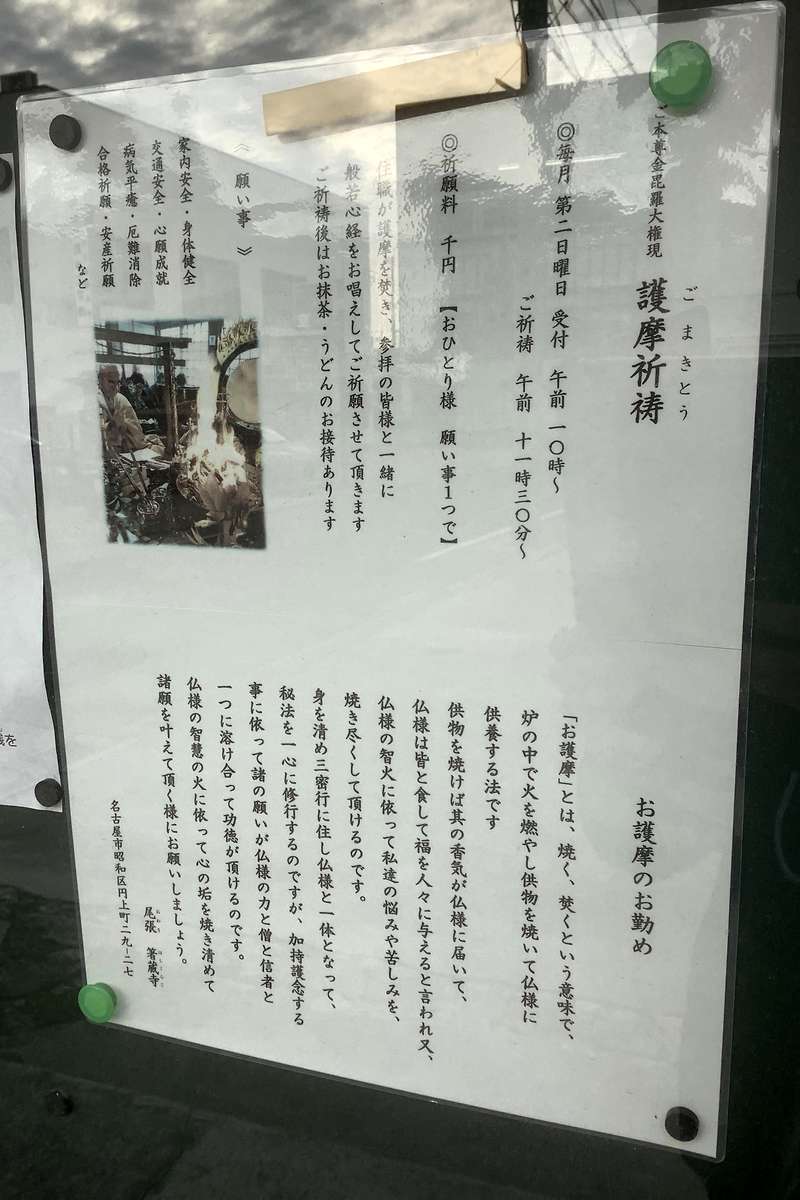 ご本尊金毘羅大権現 護摩祈祷
ごまきとう
◎毎月 第二日曜日 受付 午前 一〇時～
ご祈祷 午前 十一時三〇分～
◎祈願料 千円 【おひとり様 願い事1つで】
住職が護摩を焚き、参拝の皆様と一緒に
般若心経をお唱えしてご祈願させて頂きます
ご祈祷後はお抹茶・うどんのお接待あります
《 願い事 》
家内安全・身体健全
交通安全・心願成就
病気平癒・厄難消除
合格祈願・安産祈願
など
お護摩のお勤め
「お護摩」とは、焼く、焚くという意味で、
炉の中で火を燃やし供物を焼いて仏様に
供養する法です
供物を焼けば其の香気が仏様に届いて、
仏様は皆と食して福を人々に与えると言われ又、
仏様の智火に依って私達の悩みや苦しみを、
焼き尽くして頂けるのです。
身を清め三密行に住し仏様と一体となって、
秘法を一心に修行するのですが、加持護念する
事に依って諸の願いが仏様の力と僧と信者と
一つに溶け合って功徳が頂けるのです。
仏様の智慧の火に依って心の垢を焼き清めて
諸願を叶えて頂く様にお願いしましょう。
尾張 箸蔵寺
名古屋市昭和区円上町二九－二七